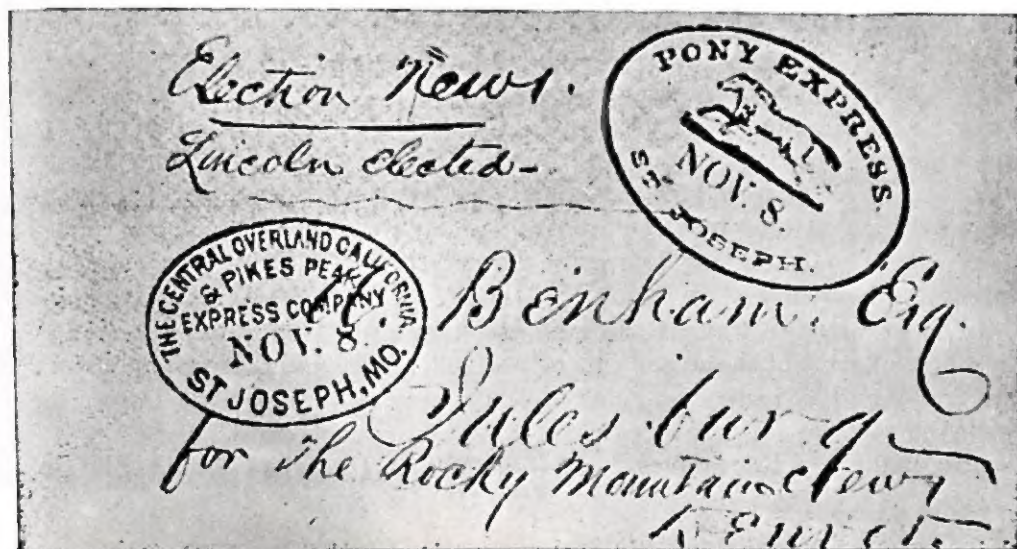 Election News.
Lincoln elected-
PONY EXPRESS.
NOV. 8.
ST. JOSEPH.
THE CENTRAL OVERLAND CALIFORNIA.
& PIKES PEAK
EXPRESS COMPANY
NOV. 8.
ST JOSEPH, MO.
Benham. Esq.
Julesburg
for The Rocky Mountain News
Denver